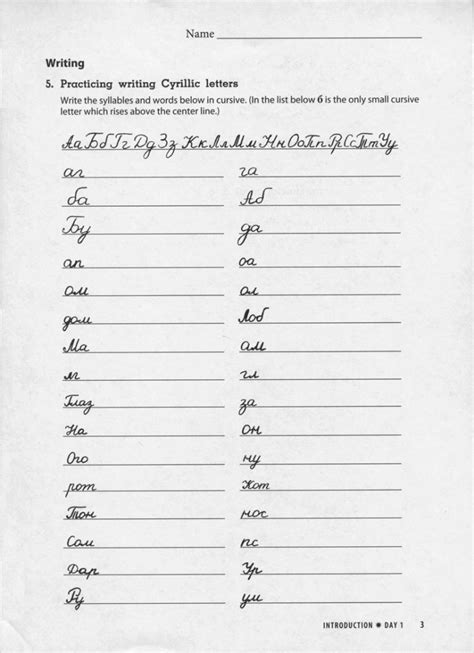 Name
Writing
5. Practicing writing Cyrillic letters
Write the syllables and words below in cursive. (In the list below б is the only small cursive
letter which rises above the center line.)
Аа Бб Гг Дд Зз Кк Лл Мм Нн Оо Пп Рр Сс Тт Уу
аг га
ба Аб
Бу да
ап оа
ом ол
дом Лоб
Ма ам
гл
Глаз за
На Он
Ого ну
рот Кот
Тон нос
Сом пс
Дар Ур
Ру ум
INTRODUCTION ✷ DAY 1 3